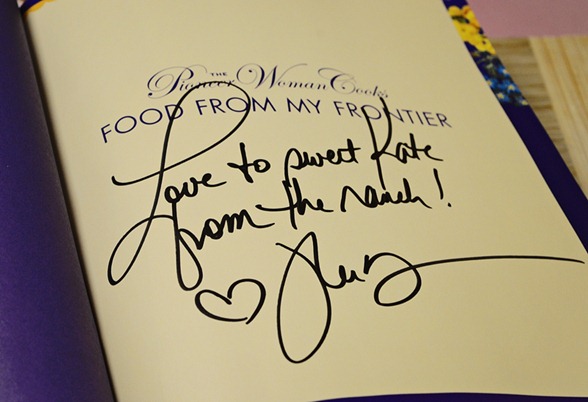 THE
Pioneer Woman Cooks
FOOD FROM MY FRONTIER
Love to sweet Kate
from the ranch!